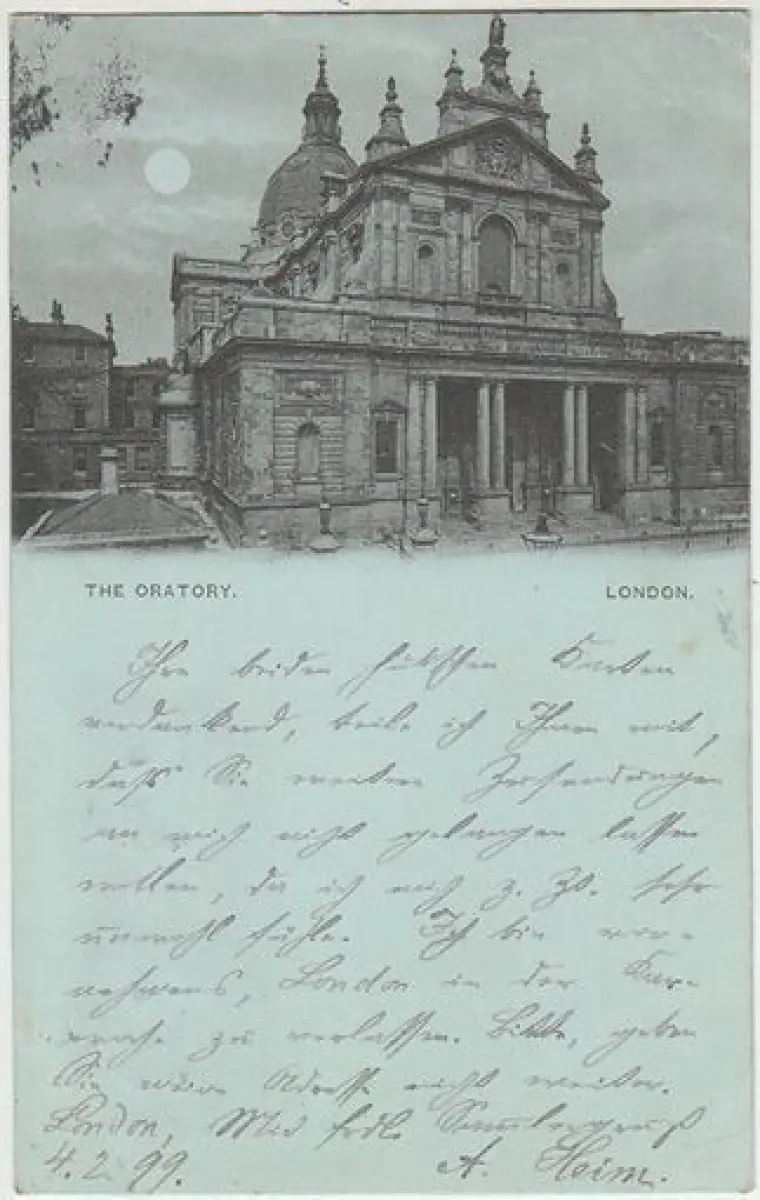 THE ORATORY. LONDON.
Ihre beiden hübschen Karten
verdankend, teile ich Ihnen mit,
daß Sie weitere Zusendungen
an mich nicht gelangen lassen
wollen, da ich mich z. Zt. sehr
unwohl fühle. Ich bin vor-
London in der
zu verlassen. Bitte, geben
Sie Adresse nicht weiter.
London, Mit frdl. Sammlergruß
4.2.99. A. Heim.